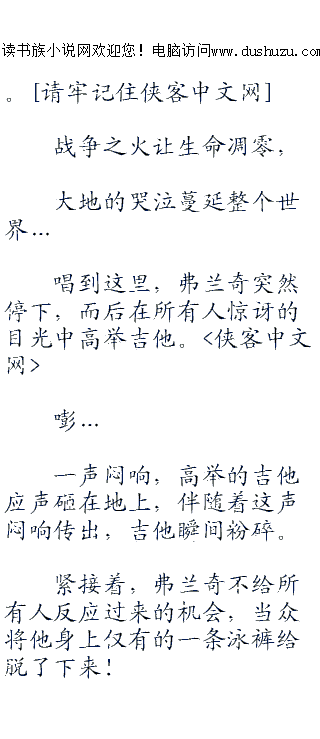 读书族小说网欢迎您！电脑访问www.dushuzu.com
。[请牢记住侠客中文网]
战争之火让生命凋零，
大地的哭泣蔓延整个世
界…
唱到这里，弗兰奇突然
停下，而后在所有人惊讶的
目光中高举吉他。<侠客中文
网>
嘭…
一声闷响，高举的吉他
应声砸在地上，伴随着这声
闷响传出，吉他瞬间粉碎。
紧接着，弗兰奇不给所
有人反应过来的机会，当众
将他身上仅有的一条泳裤给
脱了下来！